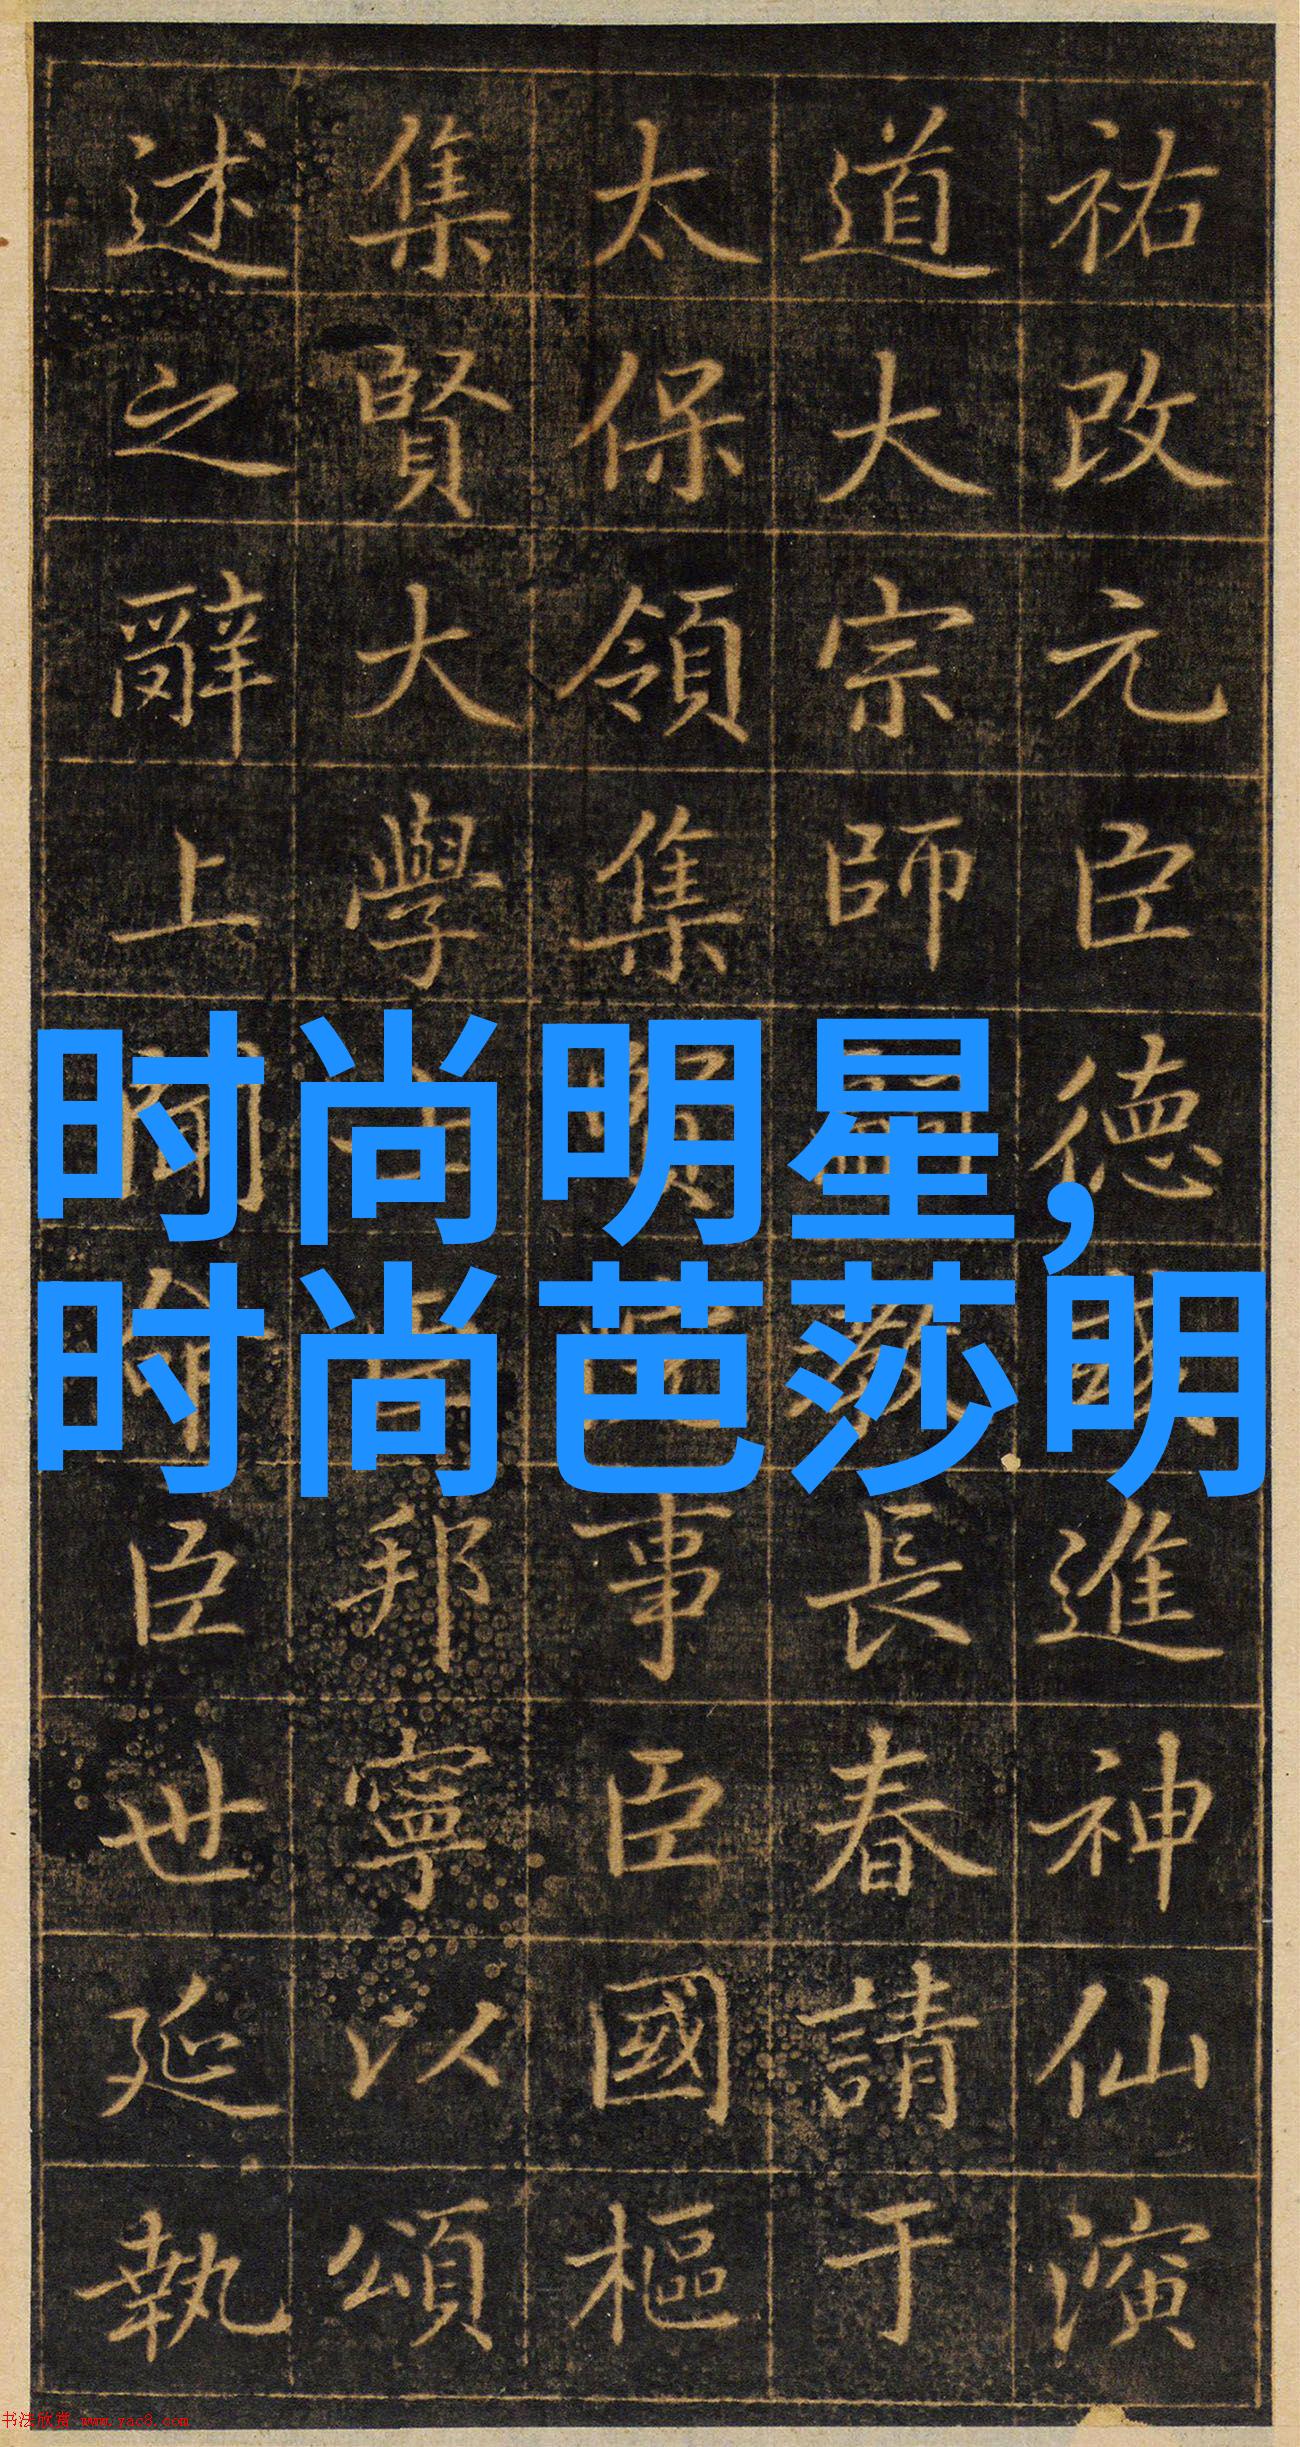 祐改元臣德進神仙演
道大宗師教長春請于
太保領集賢院事臣國樞
集賢大學士臣邦寧以頌
述之辭上聞命臣世延執
时尚明星,
时尚芭莎明
书法欣赏 www.yac8.com